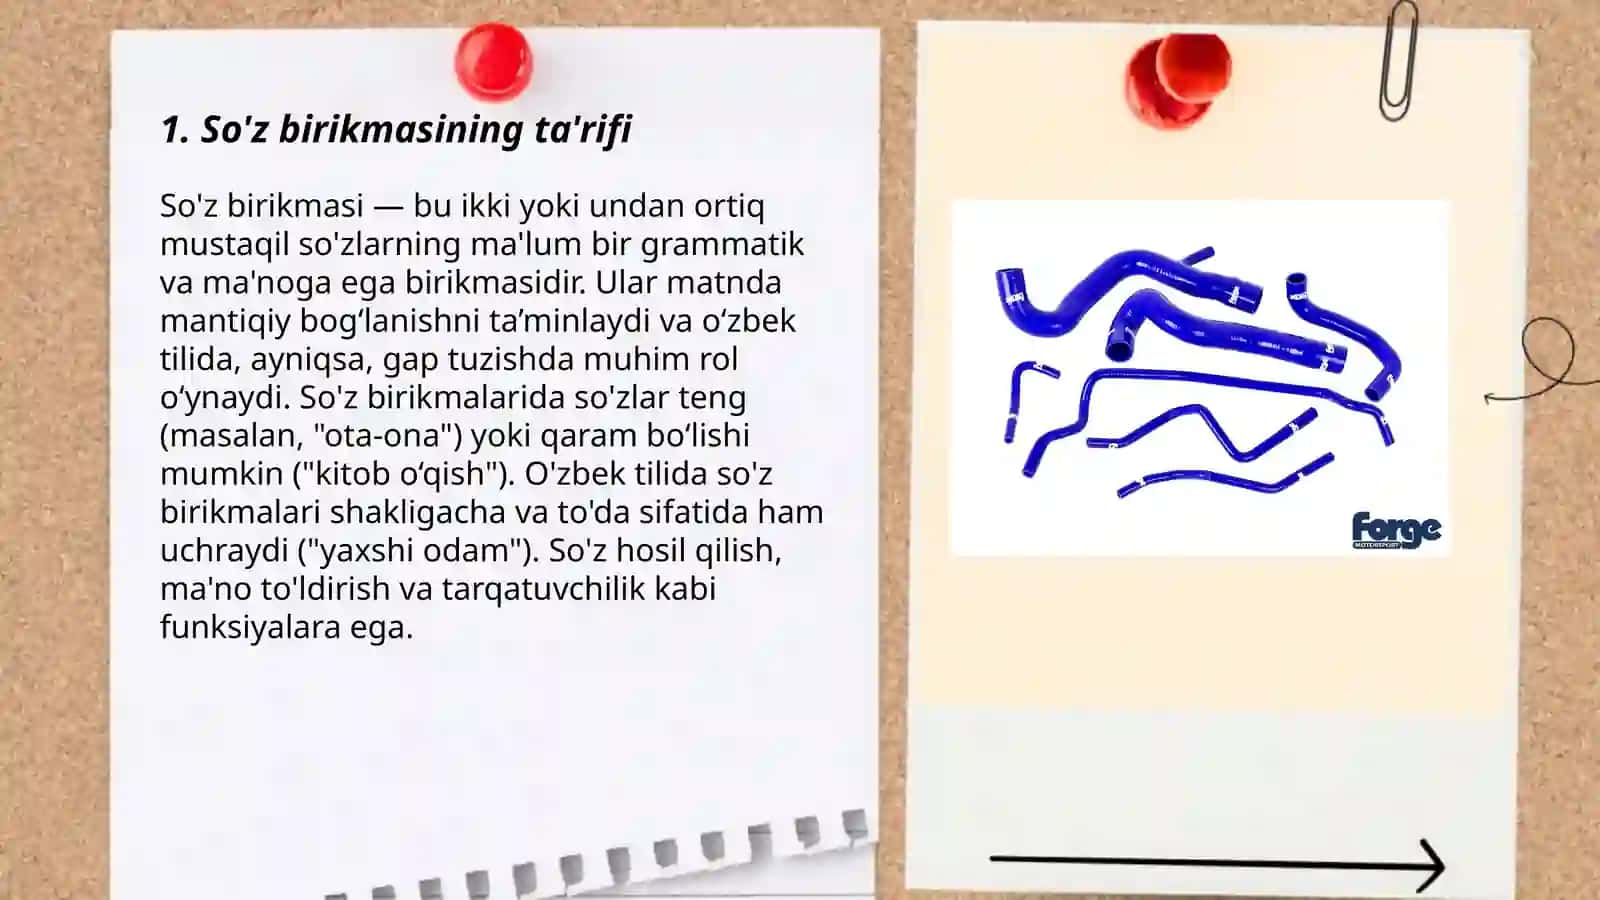 1. So'z birikmasining ta'rifi
So'z birikmasi — bu ikki yoki undan ortiq
mustaqil so'zlarning ma'lum bir grammatik
va ma'noga ega birikmasidir. Ular matnda
mantiqiy bog‘lanishni ta’minlaydi va o‘zbek
tilida, ayniqsa, gap tuzishda muhim rol
o‘ynaydi. So'z birikmalarida so'zlar teng
(masalan, "ota-ona") yoki qaram bo‘lishi
mumkin ("kitob o‘qish"). O'zbek tilida so'z
birikmalari shakligacha va to'da sifatida ham
uchraydi ("yaxshi odam"). So'z hosil qilish,
ma'no to'ldirish va tarqatuvchilik kabi
funksiyalara ega.
Forge
MOTORSPORT